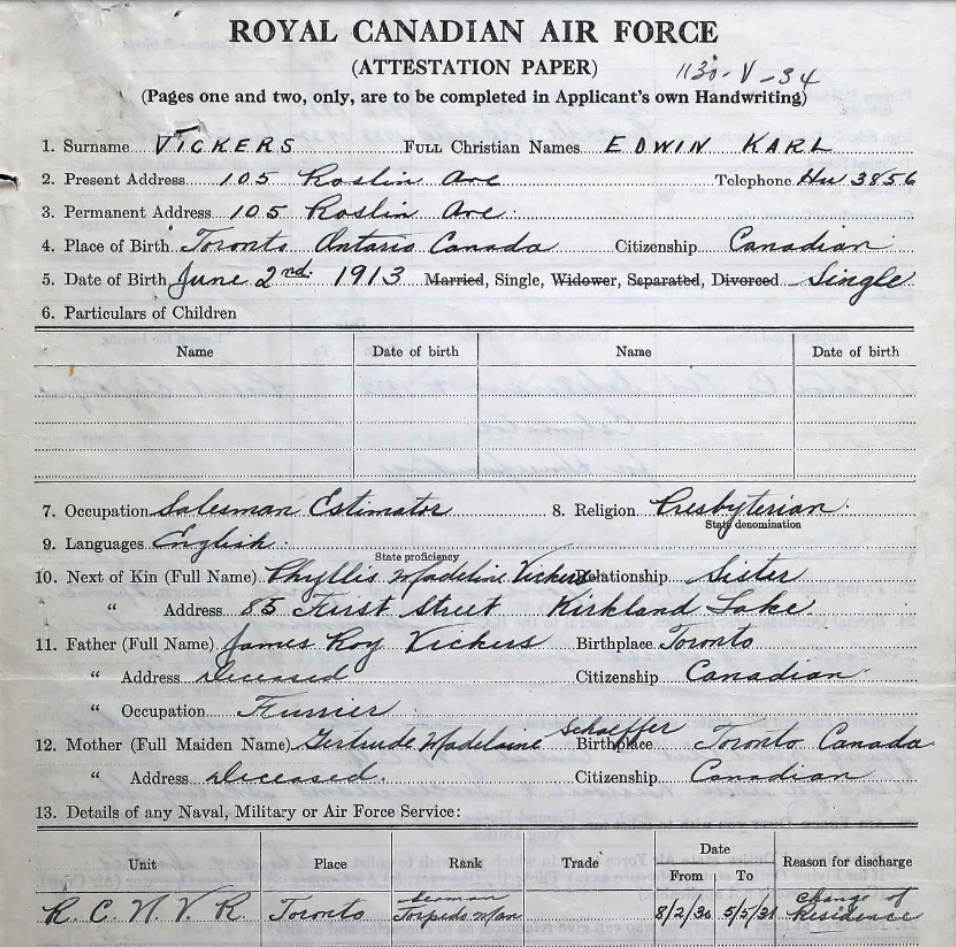 ROYAL CANADIAN AIR FORCE
(ATTESTATION PAPER) 1130-V-34
(Pages one and two, only, are to be completed in Applicant's own Handwriting)
1. Surname VICKERS FULL Christian Names EDWIN KARL
2. Present Address 105 Roslin Ave Telephone Hu 3856
3. Permanent Address 105 Roslin Ave.
4. Place of Birth Toronto Ontario Canada Citizenship Canadian
5. Date of Birth June 2nd. 1913 Married, Single, Widower, Separated, Divorced Single
6. Particulars of Children
Name Date of birth Name Date of birth
7. Occupation Salesman Estimator 8. Religion Presbyterian.
State denomination
9. Languages English.
State proficiency
10. Next of Kin (Full Name) Phyllis Madeline Vickers Relationship Sister
" Address 85 First Street Kirkland Lake
11. Father (Full Name) James Roy Vickers Birthplace Toronto
" Address deceased Citizenship Canadian
" Occupation Furrier
12. Mother (Full Maiden Name) Gertrude Madelaine Schaeffer Birthplace Toronto Canada
" Address deceased. Citizenship Canadian
13. Details of any Naval, Military or Air Force Service:
Unit Place Rank Trade Date From To Reason for discharge
R. C. N. V. R. Toronto Seaman Torpedo Man 8/2/30 5/5/31 Change of Residence